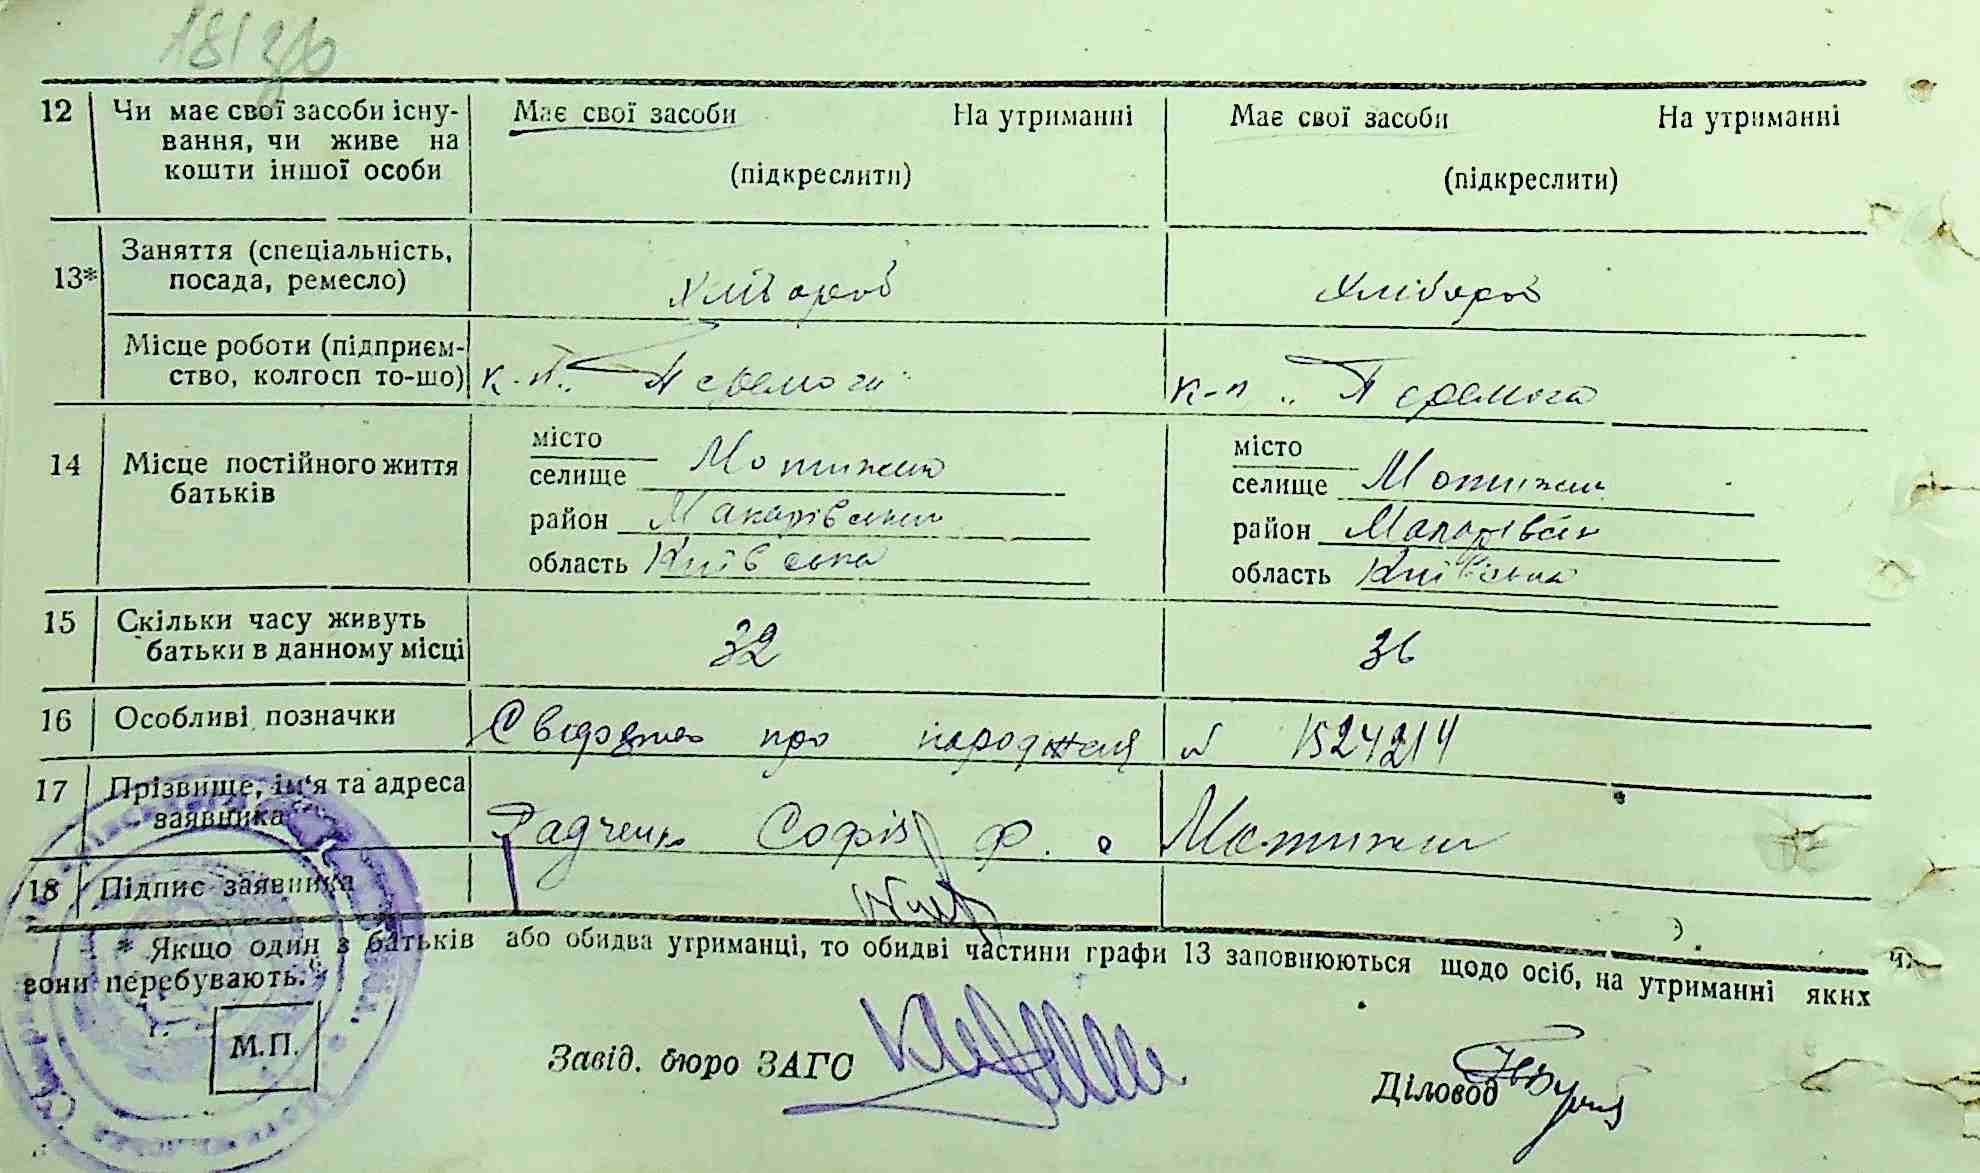 12 Чи має свої засоби існу- Має свої засоби На утриманні Має свої засоби На утриманні
вання, чи живе на
кошти іншої особи (підкреслити) (підкреслити)
13* Заняття (спеціальність,
посада, ремесло) Хлібороб Хлібороб
Місце роботи (підприєм-
ство, колгосп то-що) к-п „Перемога" к-п „Перемога
місто місто
14 Місце постійного життя селище Мотижин селище Мотижин
батьків район Макарівський район Макарівськ
область Київська область Київська
15 Скільки часу живуть
батьки в данному місці 32 36
16 Особливі позначки Свідоцтво про народження № 1524214
17 Прізвище, ім'я та адреса
заявника Радченко Софія Ф. с Мотижин
18 Підпис заявника
* Якщо один з батьків або обидва утриманці, то обидві частини графи 13 заповнюються щодо осіб, на утриманні яких
вони перебувають.
М.П.
Завід. бюро ЗАГС Діловод